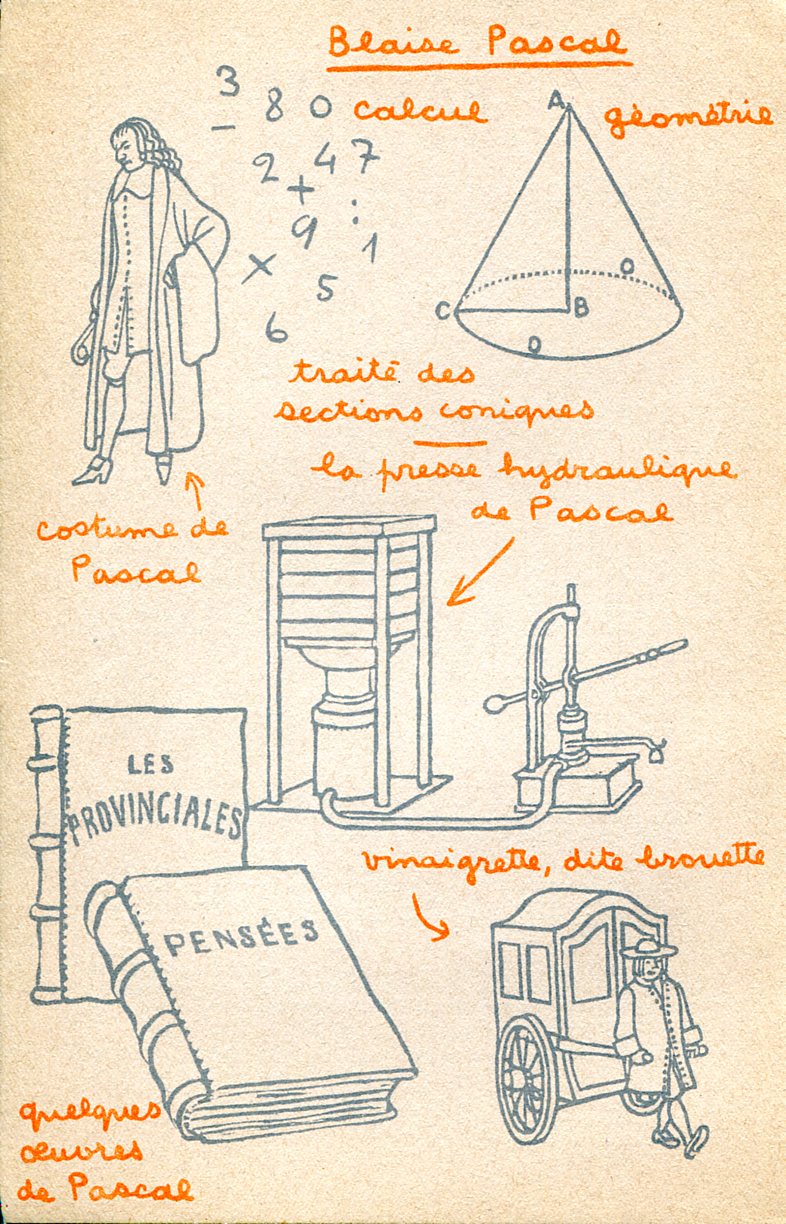 Blaise Pascal
3
- 8 0 calcul
2 4 7
+
9 :
1
×
5
6
A géomètrie
O
C B
O
traité des
sections coniques
la presse hydraulique
de Pascal
costume de
Pascal
LES
PROVINCIALES
vinaigrette, dite brouette
PENSÉES
quelques
œuvres
de Pascal